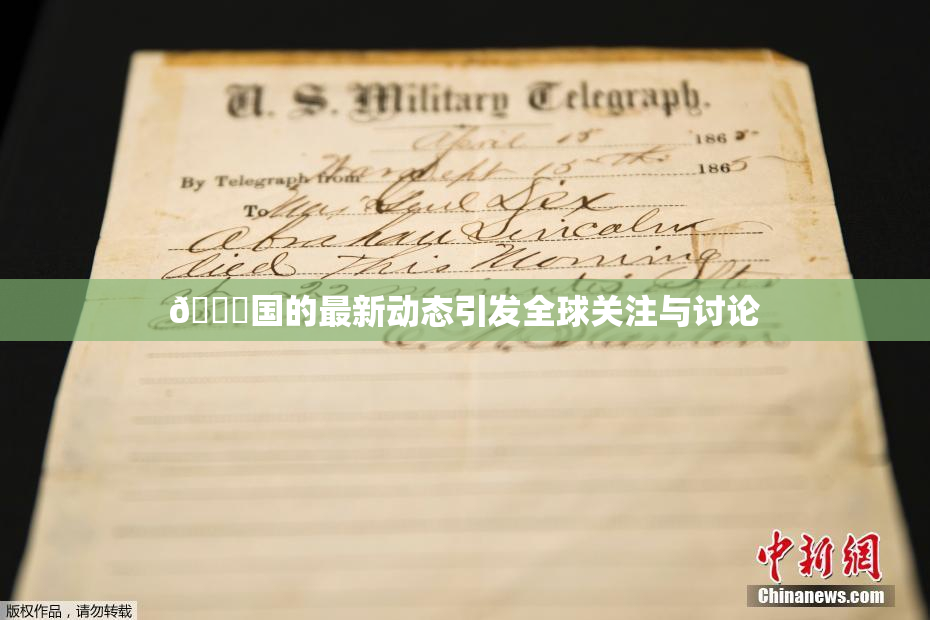 U. S. Military Telegraph.
April 15 1865
By Telegraph from War Dept 15th 1865
To Maj Genl Dix
Abraham Lincoln
died This Morning
at 22 minutes after
ð国的最新动态引发全球关注与讨论
E. M. Stanton
中新网
Chinanews.com
版权作品，请勿转载